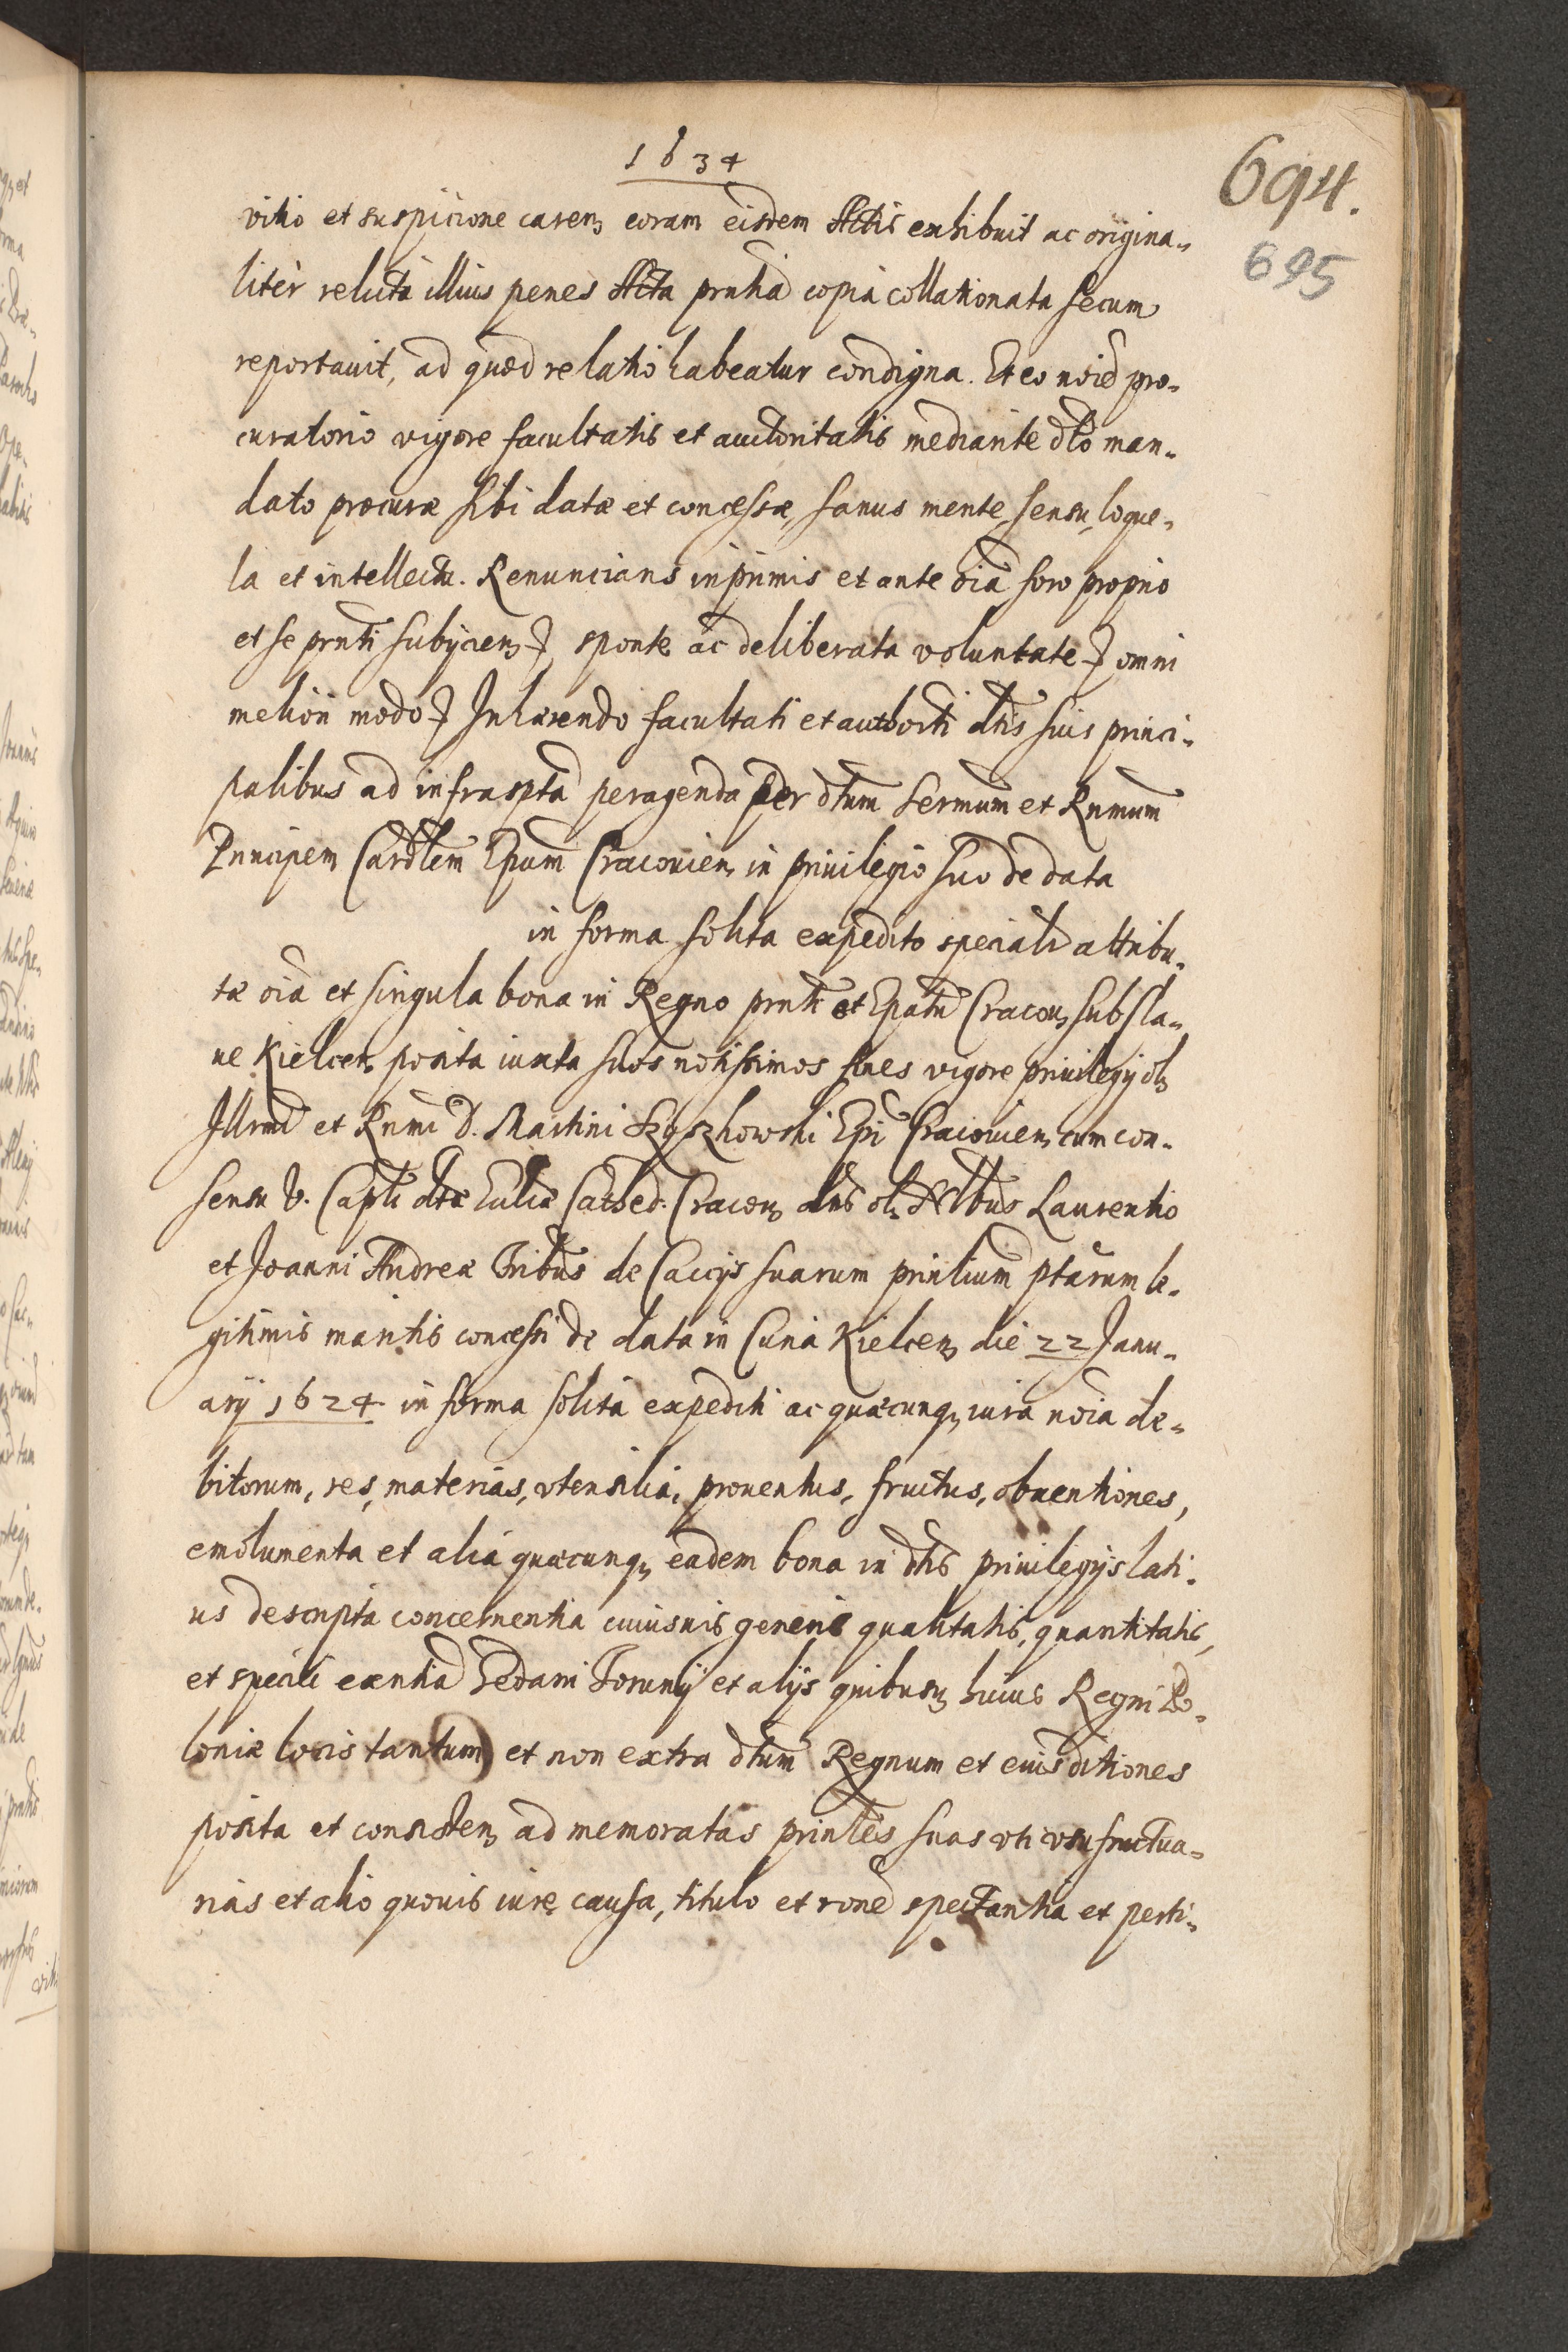 1634
694.
695
vitio et suspicione carens coram eisdem Actis exhibuit ac origina-
liter relicta illius penes Acta prntia copia collationata secum
reportauit, ad quod relatio habeatur condigna. Et eo noie pro-
curatorio vigore facultatis et auctoritatis mediante dto man-
dato procurae sibi datae et concessae, sanus mente, sensu, loque-
la et intellectu. Renuncians inprimis et ante oia foro proprio
et se prnti subijciens, sponte ac deliberata voluntate, omni
meliori modo, Inhaerendo facultati et authorti dtis suis princi-
palibus ad infraspta peragenda per dtum Sermum et Rnmum
Principem Cardlem Epum Cracouien in priuilegio suo de data
in forma solita expedito specialr attribu-
tae oia et singula bona in Regno prnti et Epatu Cracou sub Cla-
ue Kielcen posita iuxta suos notissimos fines vigore priuilegij ol
Illrmi et Rnmi D. Martini Szyszkowski Epi Cracouien cum con-
sensu V. Capli dtae Eccliae Cathed. Cracou dtis ol. Nlbus Laurentio
et Joanni Andreae Fribus de Caccijs suarum prinlium ptarum le-
gitimis maritis concessi de data in Curia Kielcen die 22 Janu-
arij 1624 in forma solita expediti ac quaecunq iura noia de-
bitorum, res, materias, vtensilia, prouentus, fructus, obuentiones,
emolumenta et alia quaecunq eadem bona in dtis priuilegijs lati-
us descripta concernentia cuiusuis generis qualitatis, quantitatis,
et speciei exntia Gedani Torunij et alijs quibusuis huius Regni Po-
loniae locis tantum) et non extra dtum Regnum et eius ditiones
posita et consisten ad memoratas prinles suas vti vsufructua-
rias et alio quouis iure, causa, titulo et rone spectantia et perti-